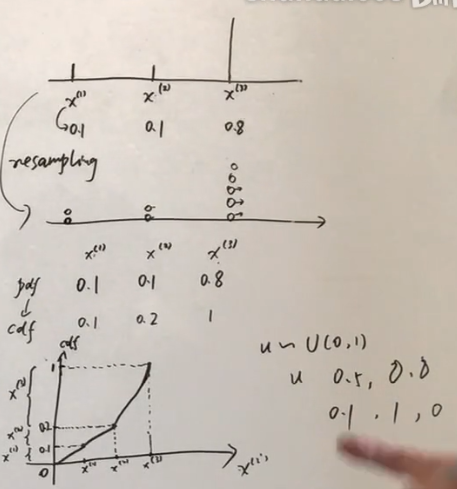 x⁽¹⁾ x⁽²⁾ x⁽³⁾
0.1 0.1 0.8
resampling
x⁽¹⁾ x⁽²⁾ x⁽³⁾
pdf 0.1 0.1 0.8
cdf 0.1 0.2 1
cdf
1
x⁽³⁾
0.2
x⁽²⁾
0.1
x⁽¹⁾
0
x⁽¹⁾ x⁽²⁾ x⁽³⁾ x⁽ⁱ⁾
u ~ U(0,1)
u 0.5, 0.8
0.1, 1, 0